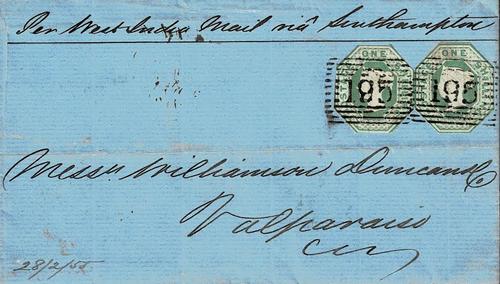 Per West India Mail viâ Southampton
ONE ONE
195 195
Messrs Williamson Duncan & Co
Valparaiso
28/2/55